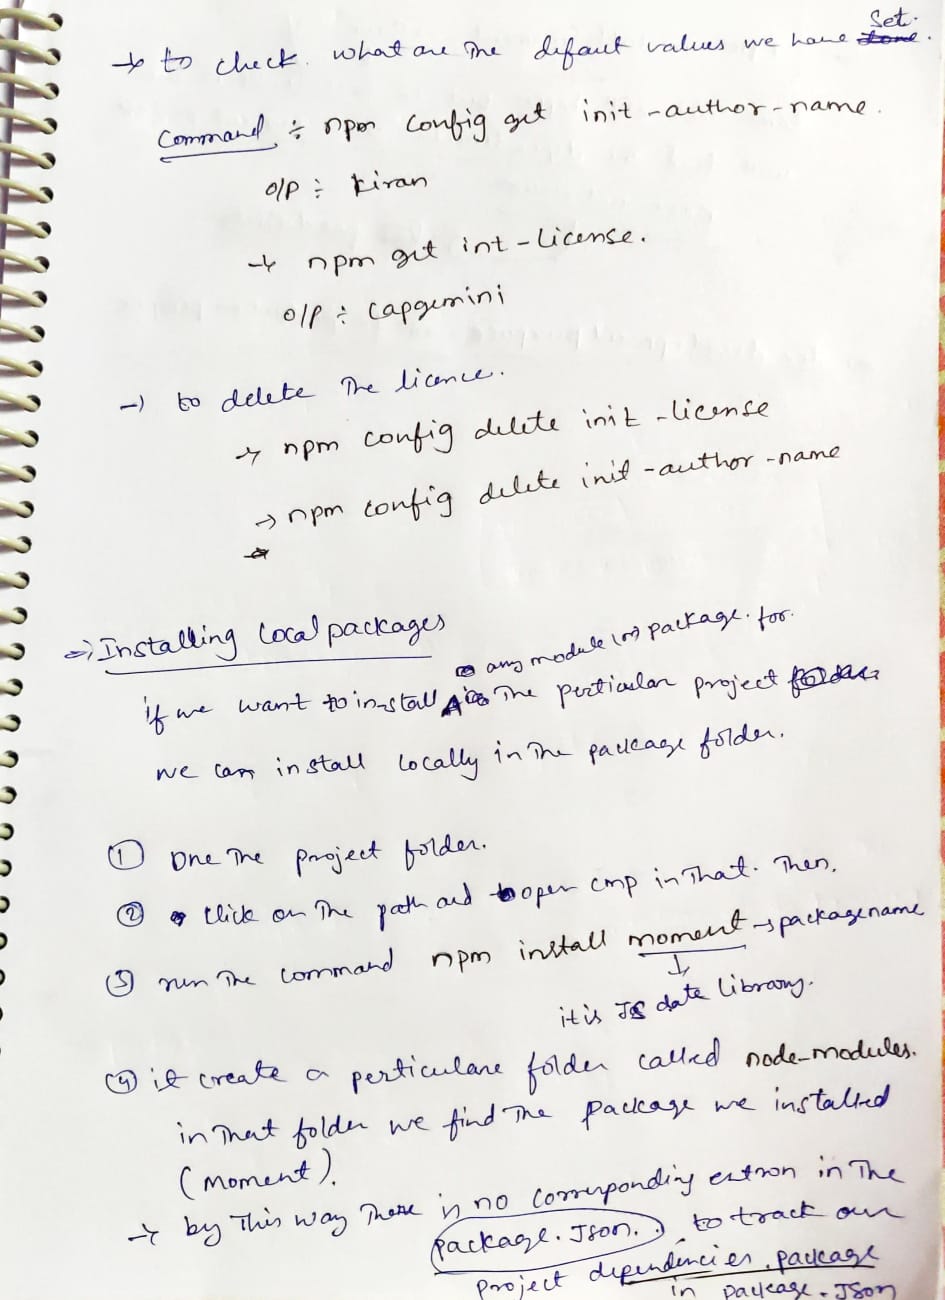 → to check what are The difault values we have Set.
Command ÷ npm config get init -author-name.
o/p ÷ kiran
→ npm get int-license.
o/p ÷ capgemini
→ to delete The licence.
→ npm config delete init -license
→ npm config delete init -author -name
⇒ Installing local packages
any module (or) package. for.
if we want to install The perticular project
we can install locally in The package folder.
① One The project folder.
② click on The path and open cmp in That. Then,
③ run The command npm install moment → packagename
↓
it is JS date library.
④ it create a perticulare folder called node-modules.
in That folder we find The package we installed
(moment).
→ by This way There is no corresponding in The
package.Json. to track our
project dependencies. package
in package.JSon